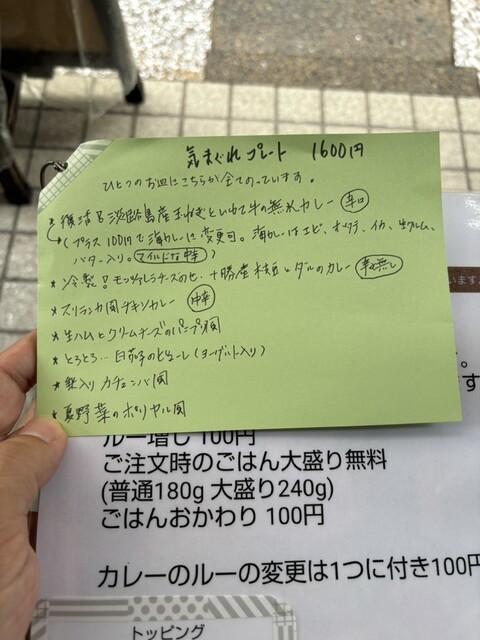 気まぐれプレート 1600円
ひとつのお皿にこちらが全てのっています。
* 復活！淡路島産玉ねぎといわて牛の無水カレー 辛口
* (プラス100円で海カレーに変更可。海カレーはエビ、ホタテ、イカ、生クリーム、
バター入り。マイルドな中辛
* 冷製！モッツァレラチーズのせ、十勝産 とダルのカレー 辛無し
* スリランカ風チキンカレー 中辛
* 生ハムとクリームチーズのパニプリ風
* とろとろ… 白茄子のピューレ(ヨーグルト入り)
* 入りカチュンバ風
* 夏野菜のポリヤル風
います
。
す
ルー増し 100円
ご注文時のごはん大盛り無料
(普通180g 大盛り240g)
ごはんおかわり 100円
カレーのルーの変更は1つに付き100円
トッピング